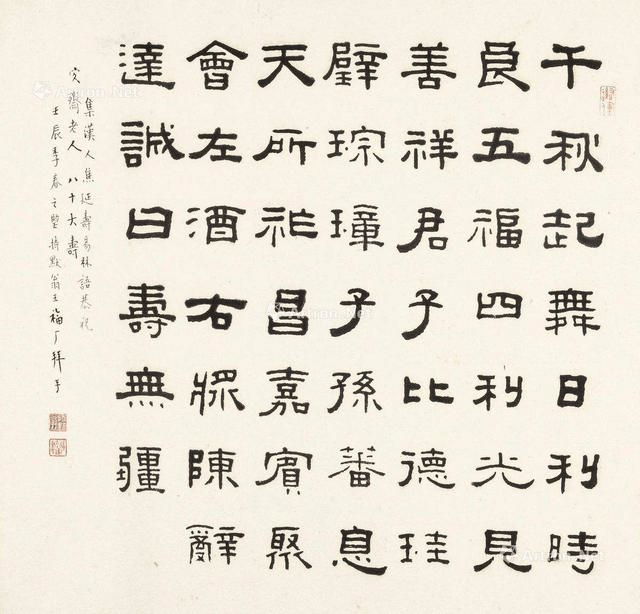 千秋起舞日利時
良五福四利光見
善祥君子比德珪
璧琮璋子孫蕃息
天所祚昌嘉賓聚
會左酒右漿陳辭
達誠曰壽無疆
集漢人焦延壽易林語恭祝
齋老人八十大壽
壬辰季春之望持默翁王福厂拜手
Artron.Net